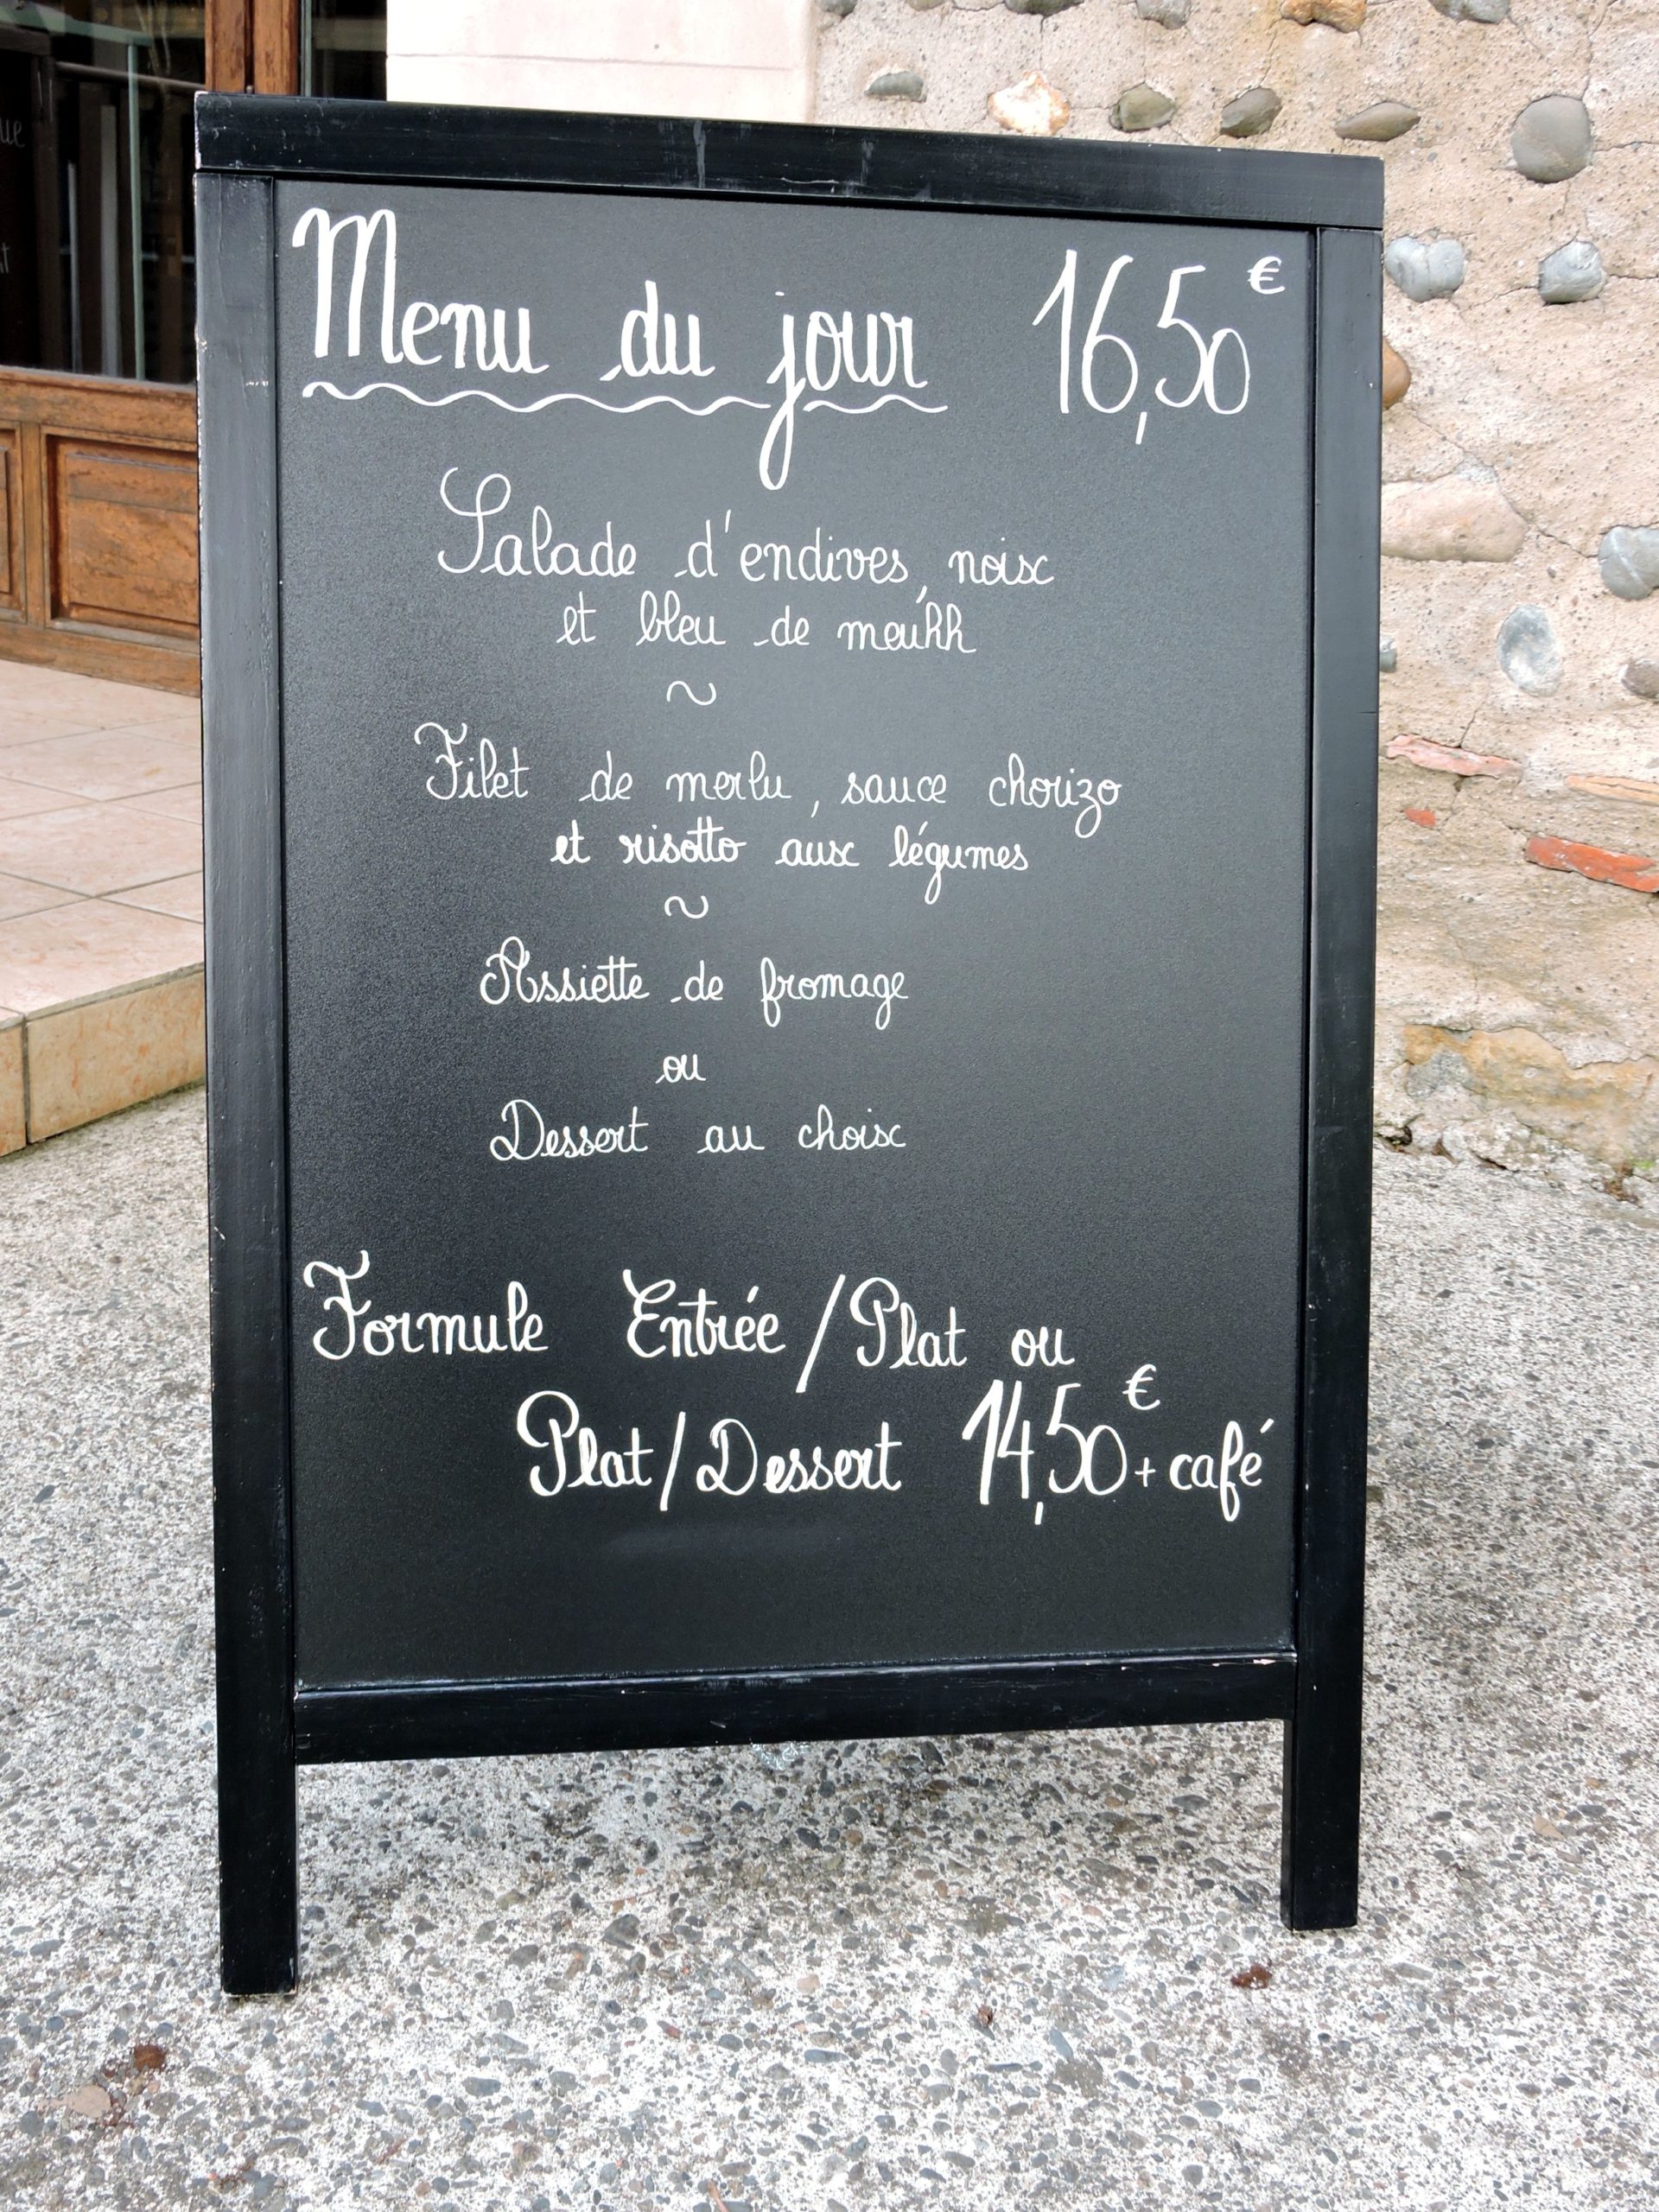 Menu du jour 16,50 €
Salade d'endives, noix
et bleu de meuhh
~
Filet de merlu, sauce chorizo
et risotto aux légumes
~
Assiette de fromage
ou
Dessert au choix
Formule Entrée / Plat ou
Plat / Dessert 14,50 € + café